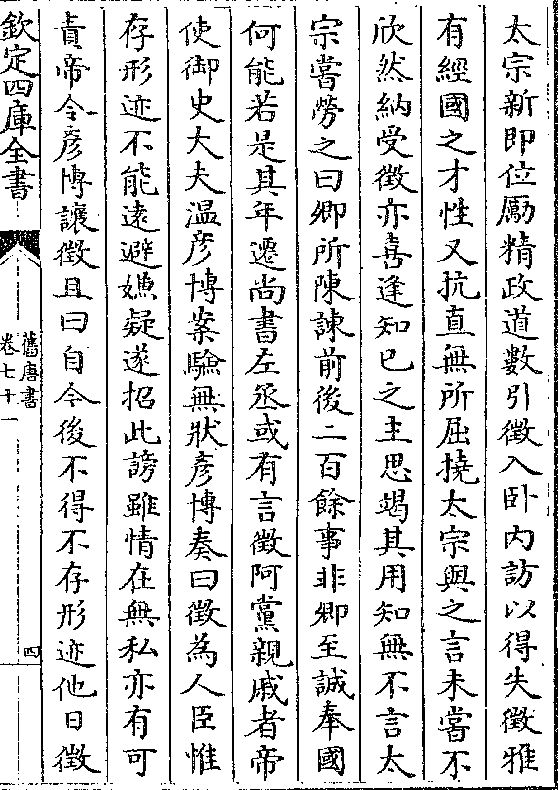 太宗新即位勵精政道數引徵入卧内訪以得失徵雅
有經國之才性又抗直無所屈撓太宗與之言未嘗不
欣然納受徵亦喜逢知己之主思竭其用知無不言太
宗嘗勞之曰卿所陳諫前後二百餘事非卿至誠奉國
何能若是其年遷尚書左丞或有言徵阿黨親戚者帝
使御史大夫温彦博案驗無狀彦博奏曰徵為人臣惟
存形迹不能逺避嫌疑遂招此謗雖情在無私亦有可
責帝令彦博讓徵且曰自今後不得不存形迹他日徵
欽定四庫全書
舊唐書
卷七十一
四